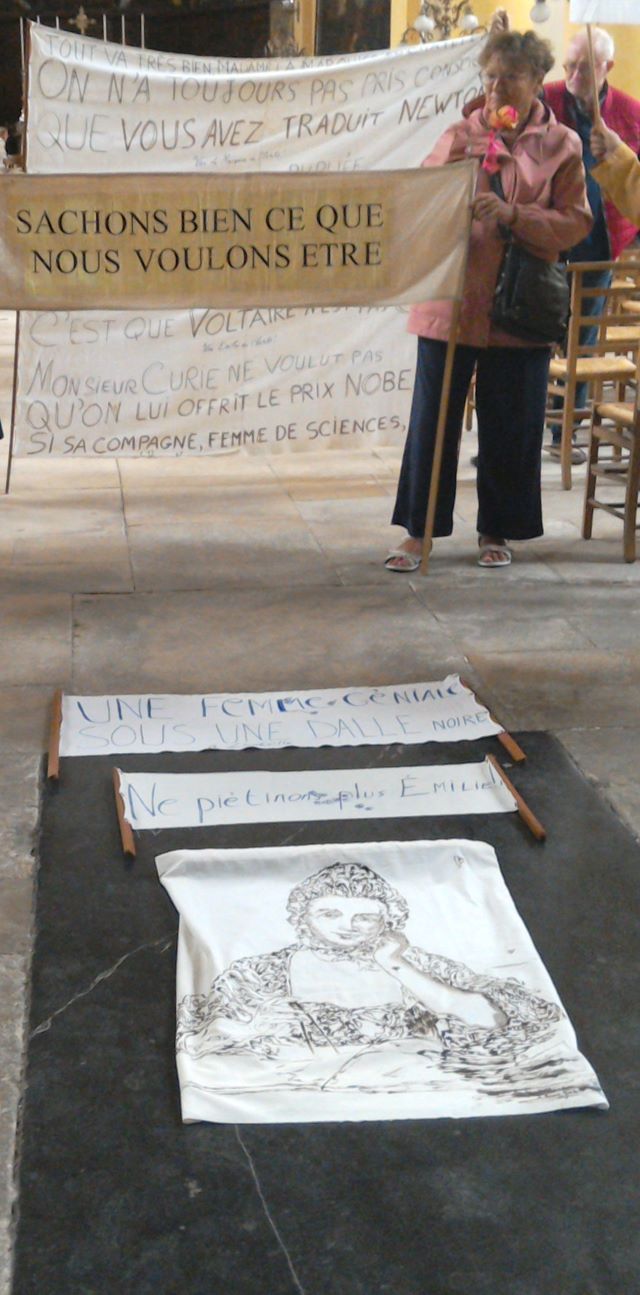 TOUT VA TRÈS BIEN MADAME LA MARQUISE
ON N'A TOUJOURS PAS PRIS CONSC
QUE VOUS AVEZ TRADUIT NEWTON
PUBLIÉE
SACHONS BIEN CE QUE
NOUS VOULONS ETRE
C'EST QUE VOLTAIRE N'EST PAS
MONSIEUR CURIE NE VOULUT PAS
QU'ON LUI OFFRIT LE PRIX NOBE
SI SA COMPAGNE, FEMME DE SCIENCES,
UNE FEMME GÉNIALE
SOUS UNE DALLE NOIRE
Ne piétinons plus ÉMILIE